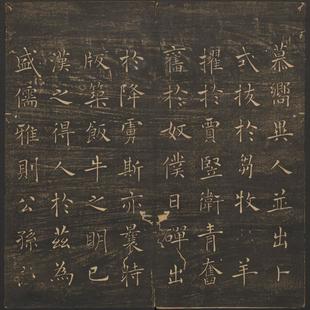 慕嚮異人並出卜
式拔於芻牧 羊
擢於賈豎衛青奮
舊於奴僕日磾出
於降虜斯亦曩時
版築飯牛之明已
漢之得人於茲為
盛儒雅則公孫